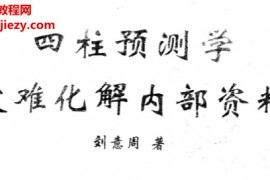 jiezy.com
四柱预测学
难化解内部资料
刘意周 著